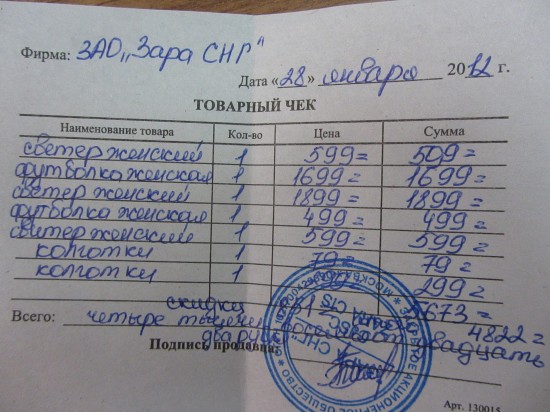 Фирма: ЗАО „Зара СНГ“
Дата «28» января 2012 г.
ТОВАРНЫЙ ЧЕК
Наименование товара Кол-во Цена Сумма
светер женский 1 599= 509=
футболка женская 1 1699= 1699=
светер женский 1 1899= 1899=
футболка женская 1 499= 499=
светер женский 1 599= 599=
колготки 1 79= 79=
колготки 1 299=
скидки 5673=
4822=
Всего: четыре тысячи восемьсот двадцать
два рубля
Подпись продавца
Арт. 130015